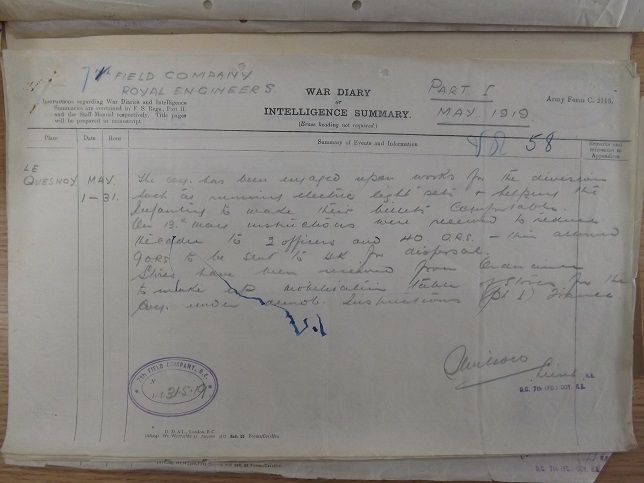 7th FIELD COMPANY
ROYAL ENGINEERS
Instructions regarding War Diaries and Intelligence
Summaries are contained in F. S. Regs., Part II.
and the Staff Manual respectively. Title pages
will be prepared in manuscript.
WAR DIARY
or
INTELLIGENCE SUMMARY.
(Erase heading not required.)
PART I
MAY 1919
Army Form C. 2118.
58
Place Date Hour Summary of Events and Information Remarks and references to Appendices
LE
QUESNOY MAY
1-31.
The coy. has been engaged upon works for the division
such as running electric light sets & helping the
Infantry to make their billets comfortable.
On 13th May instructions were received to reduce
the cadre to 2 officers and 40 O.R.S. - this allowed
9 O.R.S to be sent to UK for disposal.
Stores have been received from Ordnance
to make up mobilization table of stores for the
Coy. under demob. Instructions (Pt 1) France
7TH FIELD COMPANY, R.E.
31·5·19
R.E.
O.C. 7TH (FD.) COY. R.E.